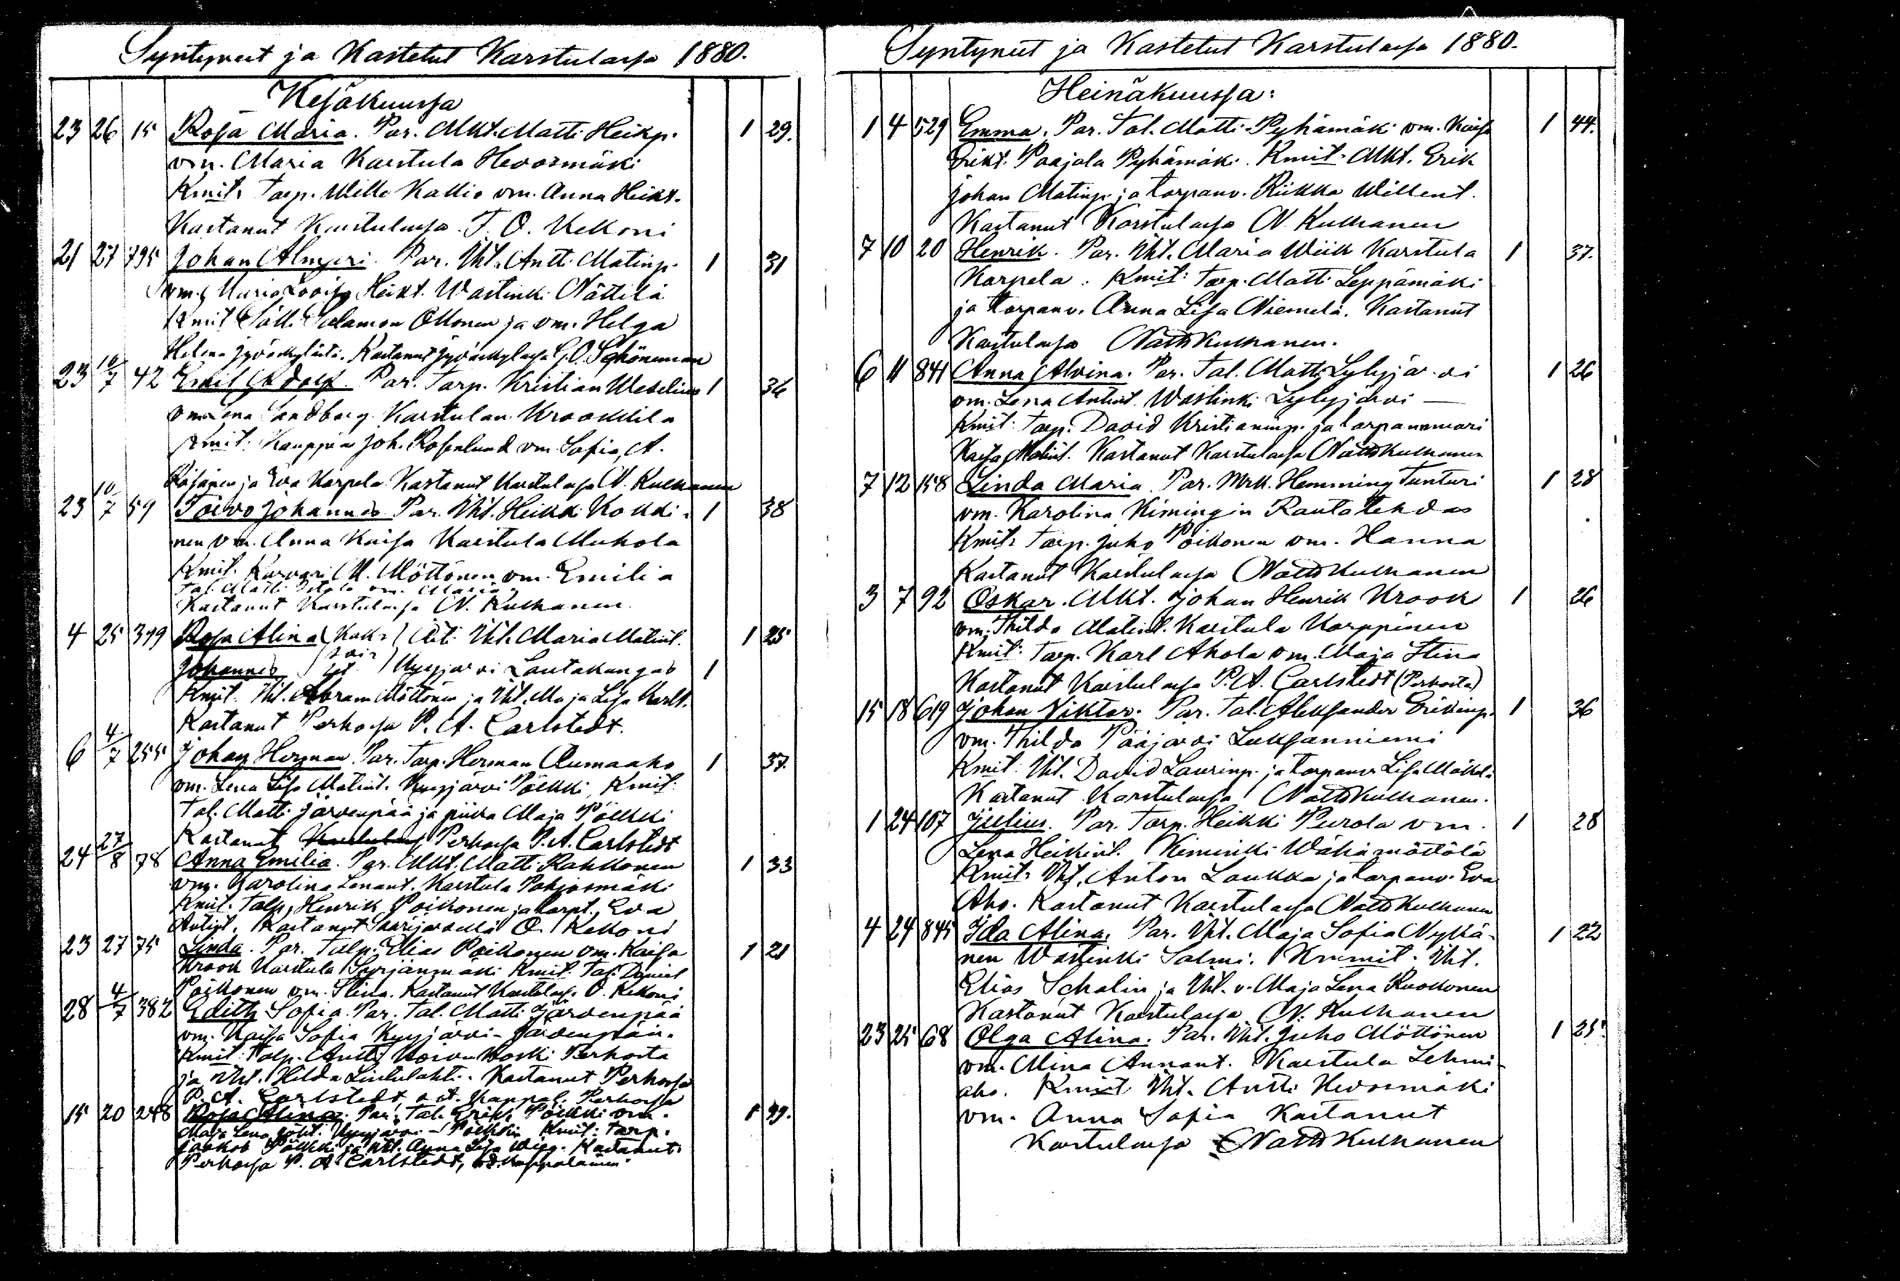 Syntyneet ja Kastetut Karstulassa 1880.
Kesäkuussa
23 26 15 Rosa Maria. Par. Mkt. Matti Heikp. 1 29.
vm. Maria Karstula Hevosmäki
Kmit. Torp. Wille Kallio vm. Anna Heikt.
Kastanut Karstulassa T. O. Kekoni
21 27 795 Johan Almari. Par. Vkl. Antti Matinp. 1 31
vm. Maria Lovisa Heikt. Wastinki Nättilä
Kmit Sälli Salamon Ollonen ja vm. Helga
Helena Jyväskylästä. Kastanut Jyväskylässä G. O. Schöneman
23 10/7 42 Emil Adolf Par. Torp. Kristian Weselius 1 36
vm Lena Sandberg Karstulan Krookkila
Kmit. Kauppias Joh. Rosenlund vm. Sofia A.
Räsänen ja Eva Karpela Kastanut Karstulassa N. Kulhanen
23 10/7 59 Toivo Johannes Par. Vkl. Heikki Kokki- 1 38
nen vm. Anna Kaisa Karstula Muhola
Kmit. Karvari M. Möttönen vm. Emilia
Tal. Matti vm. Maria
Kastanut Karstulassa N. Kulhanen.
4 25 399 Rosa Alina (Kak- Äiti Vkl. Maria Matint. 1 25
Johannes soiset Kyyjärvi Lautakangas 1
Kmit. Vkl. Abram Möttönen ja Vkl. Maja Lisa Karlt.
Kastanut Perhossa P. A. Carlstedt.
6 4/7 255 Johan Herman Par. Torp. Herman Aumaaho 1 37.
vm. Lena Lisa Matint. Kyyjärvi Pölkki, Kmit.
Tal. Matti Järvenpää ja piika Maja Pölkki
Kastanut Karstulassa Perhossa P. A. Carlstedt
24 27/8 78 Anna Emilia. Par. Mkt. Matti Kakkonen 1 33
vm. Karolina Karstula Pohjosmäki
Kmit. Talp. Henrik Poikonen ja torpt. Eva
Antint. Kastanut Saarijärvellä O. Kekoni
23 27 75 Lynda. Par. Talp. Elias Poikonen vm. Kaisa 1 21
Krook Karstula Syrjänmäki Kmit. Tal. Daniel
Poikonen vm. Stina. Kastanut Karstulassa O. Kekoni
28 4/7 382 Edith Sofia. Par. Tal. Matti Järvenpää
vm. Kaisa Sofia Kyyjärvi Järvenpään.
Kmit. Talp. Antti Koivukoski Perhosta
ja Vkl. Hilda Lintulahti. Kastanut Perhossa
P. A. Carlstedt v.t. Kappal. Perhossa
15 20 248 Rosa Alina. Par. Tal. Erik Pölkki vm. 1 39.
Maja Lena Joht. Kyyjärvi Pölkki Kmit. Torp.
Jaakob Pölkki ja Vkl. Anna Lisa Kastanut
Perhossa P. A. Carlstedt, v.t. kappalainen
Syntyneet ja Kastetut Karstulassa 1880.
Heinäkuussa:
1 4 529 Emma. Par. Tal. Matti Pyhämäki vm. Kaisa 1 44.
Erikt. Paajala Pyhämäki. Kmit. Mkt. Erik
Johan Matinp. ja torpanv. Riikka Willent.
Kastanut Karstulassa N. Kulhanen
7 10 20 Henrik. Par. Vkl. Maria Wiik Karstula 1 37.
Karpela. Kmit: Torp. Matti Leppämäki
ja torpanv. Anna Lisa Niemelä. Kastanut
Karstulassa Natt Kulhanen.
6 11 841 Anna Alvina. Par. Tal. Matti Lylyjärvi 1 26
vm. Lena Antint. Wastinki Lylyjärvi —
Kmit. Torp. David Kristianinp. ja torpanvaari
Kaisa Matint. Kastanut Karstulassa Natt Kulhanen
7 12 158 Linda Maria. Par. Mrk. Hemming Tunturi 1 28
vm. Karolina Kimingin Rautatehdas
Kmit. Torp. Juho Poikonen vm. Hanna
Kastanut Karstulassa Natt Kulhanen
3 7 92 Oskar. Mkt. Johan Henrik Krook 1 26
vm. Thilda Matint. Karstula Korppinen
Kmit. Torp. Karl Ahola vm. Maja Stina
Kastanut Karstulassa P. A. Carlstedt (Perhosta)
15 18 619 Johan Viktor. Par. Tal. Aleksander Erikinp. 1 36
vm. Thilda Pääjärvi Luksanniemi
Kmit. Vkl. David Laurinp. ja torpanv Lisa Mäkelä
Kastanut Karstulassa Natt Kulhanen.
1 24 107 Julius. Par. Torp. Heikki Purola vm. 1 28
Lena Heikint. Kiminki Wähämöttölä
Kmit. Vkl. Anton Laukka ja torpanv. Eva
Aho. Kastanut Karstulassa Natt Kulhanen
4 24 845 Ida Alina. Par. Vkl. Maja Sofia Nykä- 1 22
nen Wastinki Salmi. Kummit. Vkl.
Elias Schalin ja Vkl. v. Maja Lena Ruokonen
Kastanut Karstulassa N. Kulhanen
23 25 68 Olga Alina. Par. Vkl. Juho Möttönen 1 25.
vm. Mina Annant. Karstula Lehmi-
aho. Kmit Vkl. Antti Hevosmäki
vm. Anna Sofia Kastanut
Karstulassa Natt Kulhanen